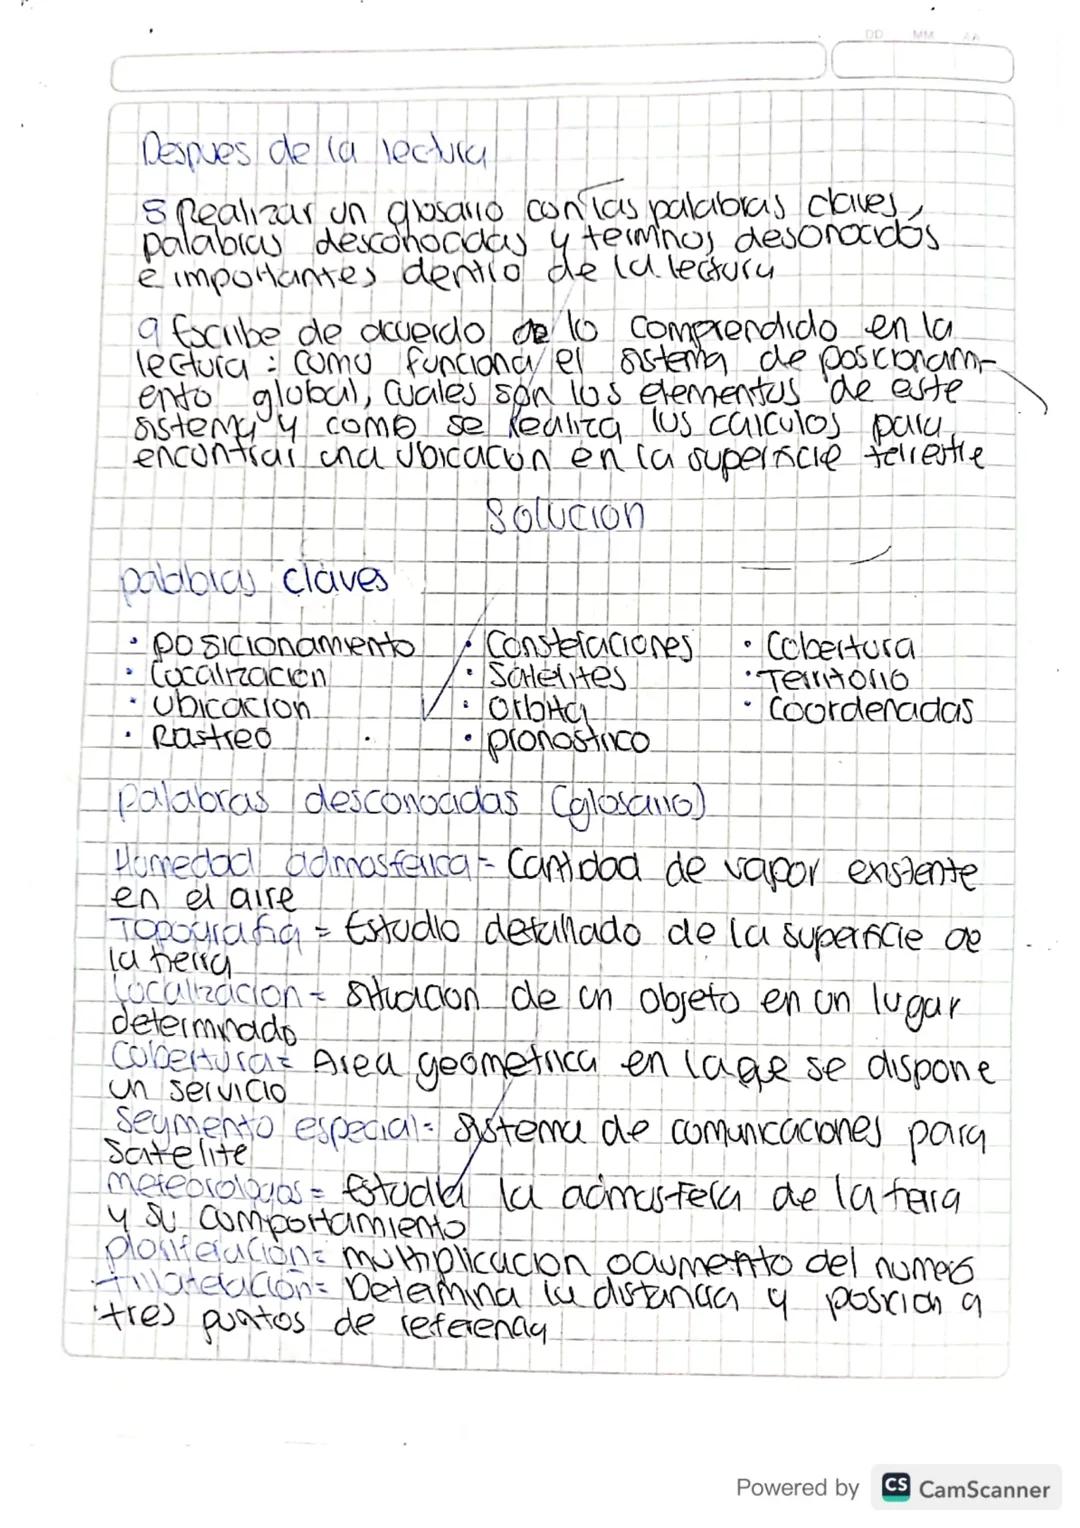 DD MM AA
Despues de la lectura
8 Realizar un glosario con las palabras claves,
palabras desconocidas y terminos desonocidos
e importantes dentro de la lectura
9 Escribe de acuerdo de lo comprendido en la
lectura : como funciona el sistema de poscionam-
ento global, cuales son los elementos de este
sistema y como se realiza los calculos para
encontrar una ubicacion en la superficie terrestre
Solucion
palabras claves
• posicionamiento
• Localizacion
• Ubicacion
• Rastreo
• Constelaciones
• Satelites
• Orbita
• pronostico
• Cobertura
• Territorio
• Coordenadas
palabras desconocidas (glosario)
Humedad admosferica = Cantidad de vapor existente
en el aire
Topografia = Estudio detallado de la superficie de
la tierra
Localizacion = situacion de un objeto en un lugar
determinado
Cobertura = Area geometrica en la que se dispone
un servicio
Segmento especial = sistema de comunicaciones para
satelite
meteorologas = Estudia la admosfera de la tierra
y su comportamiento
proliferacion = multiplicacion o aumento del numero
• trilateracion = Determina la distancia y posicion a
tres puntos de referencia
Powered by CS CamScanner